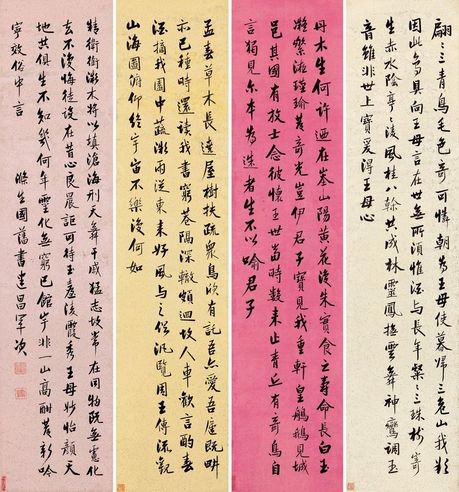 翩翩三青鳥毛色奇可憐朝為王母使暮歸三危山我欲
因此鳥具向王母言在世無所須惟酒與長年粲粲三珠樹寄
生赤水陰亭亭凌風桂八榦共成林靈鳳撫雲舞神鸞調玉
音雖非世上寶爰得王母心
丹木生何許迺在峚山陽黃花復朱實食之壽命長白玉
凝素液瑾瑜發奇光豈伊君子寶見我重軒皇鵃鵝見城
邑其國有放士念彼懷王世當時數來止青丘有奇鳥自
言獨見尔本為迷者生不以喻君子
孟夏草木長遶屋樹扶疏衆鳥欣有託吾亦愛吾廬既耕
亦已種時還讀我書窮巷隔深轍頗迴故人車歡言酌春
酒摘我園中蔬微雨從東來好風與之俱汎覽周王傳流觀
山海圖俯仰終宇宙不樂復何如
精衛銜微木將以填滄海刑天舞干戚猛志故常在同物既無慮化
去不復悔徒設在昔心良晨詎可待玉臺凌霞秀王母妙怡顏天
地共俱生不知幾何年靈化無窮已館宇非一山高酣發新吟
寧效俗中言 滌生國藩書建昌軍次